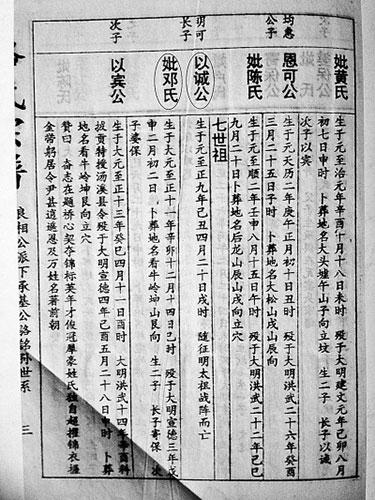 妣黄氏 生于元至治元年辛酉十月十八日未時 殁于大明建文元年己卯八月
初七日申時 卜葬地名大头墟午山子向立坟 生二子 長子以诚
次子以宾
均惠公子
恩可公 生于元天历二年庚午正月初十日丑时 殁于大明洪武二十六年癸酉
三月二十五日子时 卜葬地名大松山戌山辰向
妣陈氏 生于元至顺二年壬申八月十五日午时 殁于大明洪武二十二年己巳
九月二十日卜葬地名后龙山辰山戌向立穴
七世祖
玥可长子
以诚公 生于元至正九年己丑四月二十日戌时 随征明太祖战阵而亡
妣邓氏 生于大元至正十一年辛卯十二月十四日巳时 殁于大明宣德三年戊
申二月初二日 卜葬地名看牛岭坤山艮向 生二子 长子寄保 次
子婆保
次子
以宾公 生于大元至正十三年癸巳四月十一日酉时 大明洪武十四年辛酉科
拔贡特授汤溪县令殁于大明宣德四年己酉五月二十八日申时 卜葬
地名看牛岭坤艮向立穴
赞曰 奋志在题桥心契在锦标英年才俊冠
金带躬居令尹甚逍遥恩及刁姓名著前朝
良相公派下承基公 世系 三